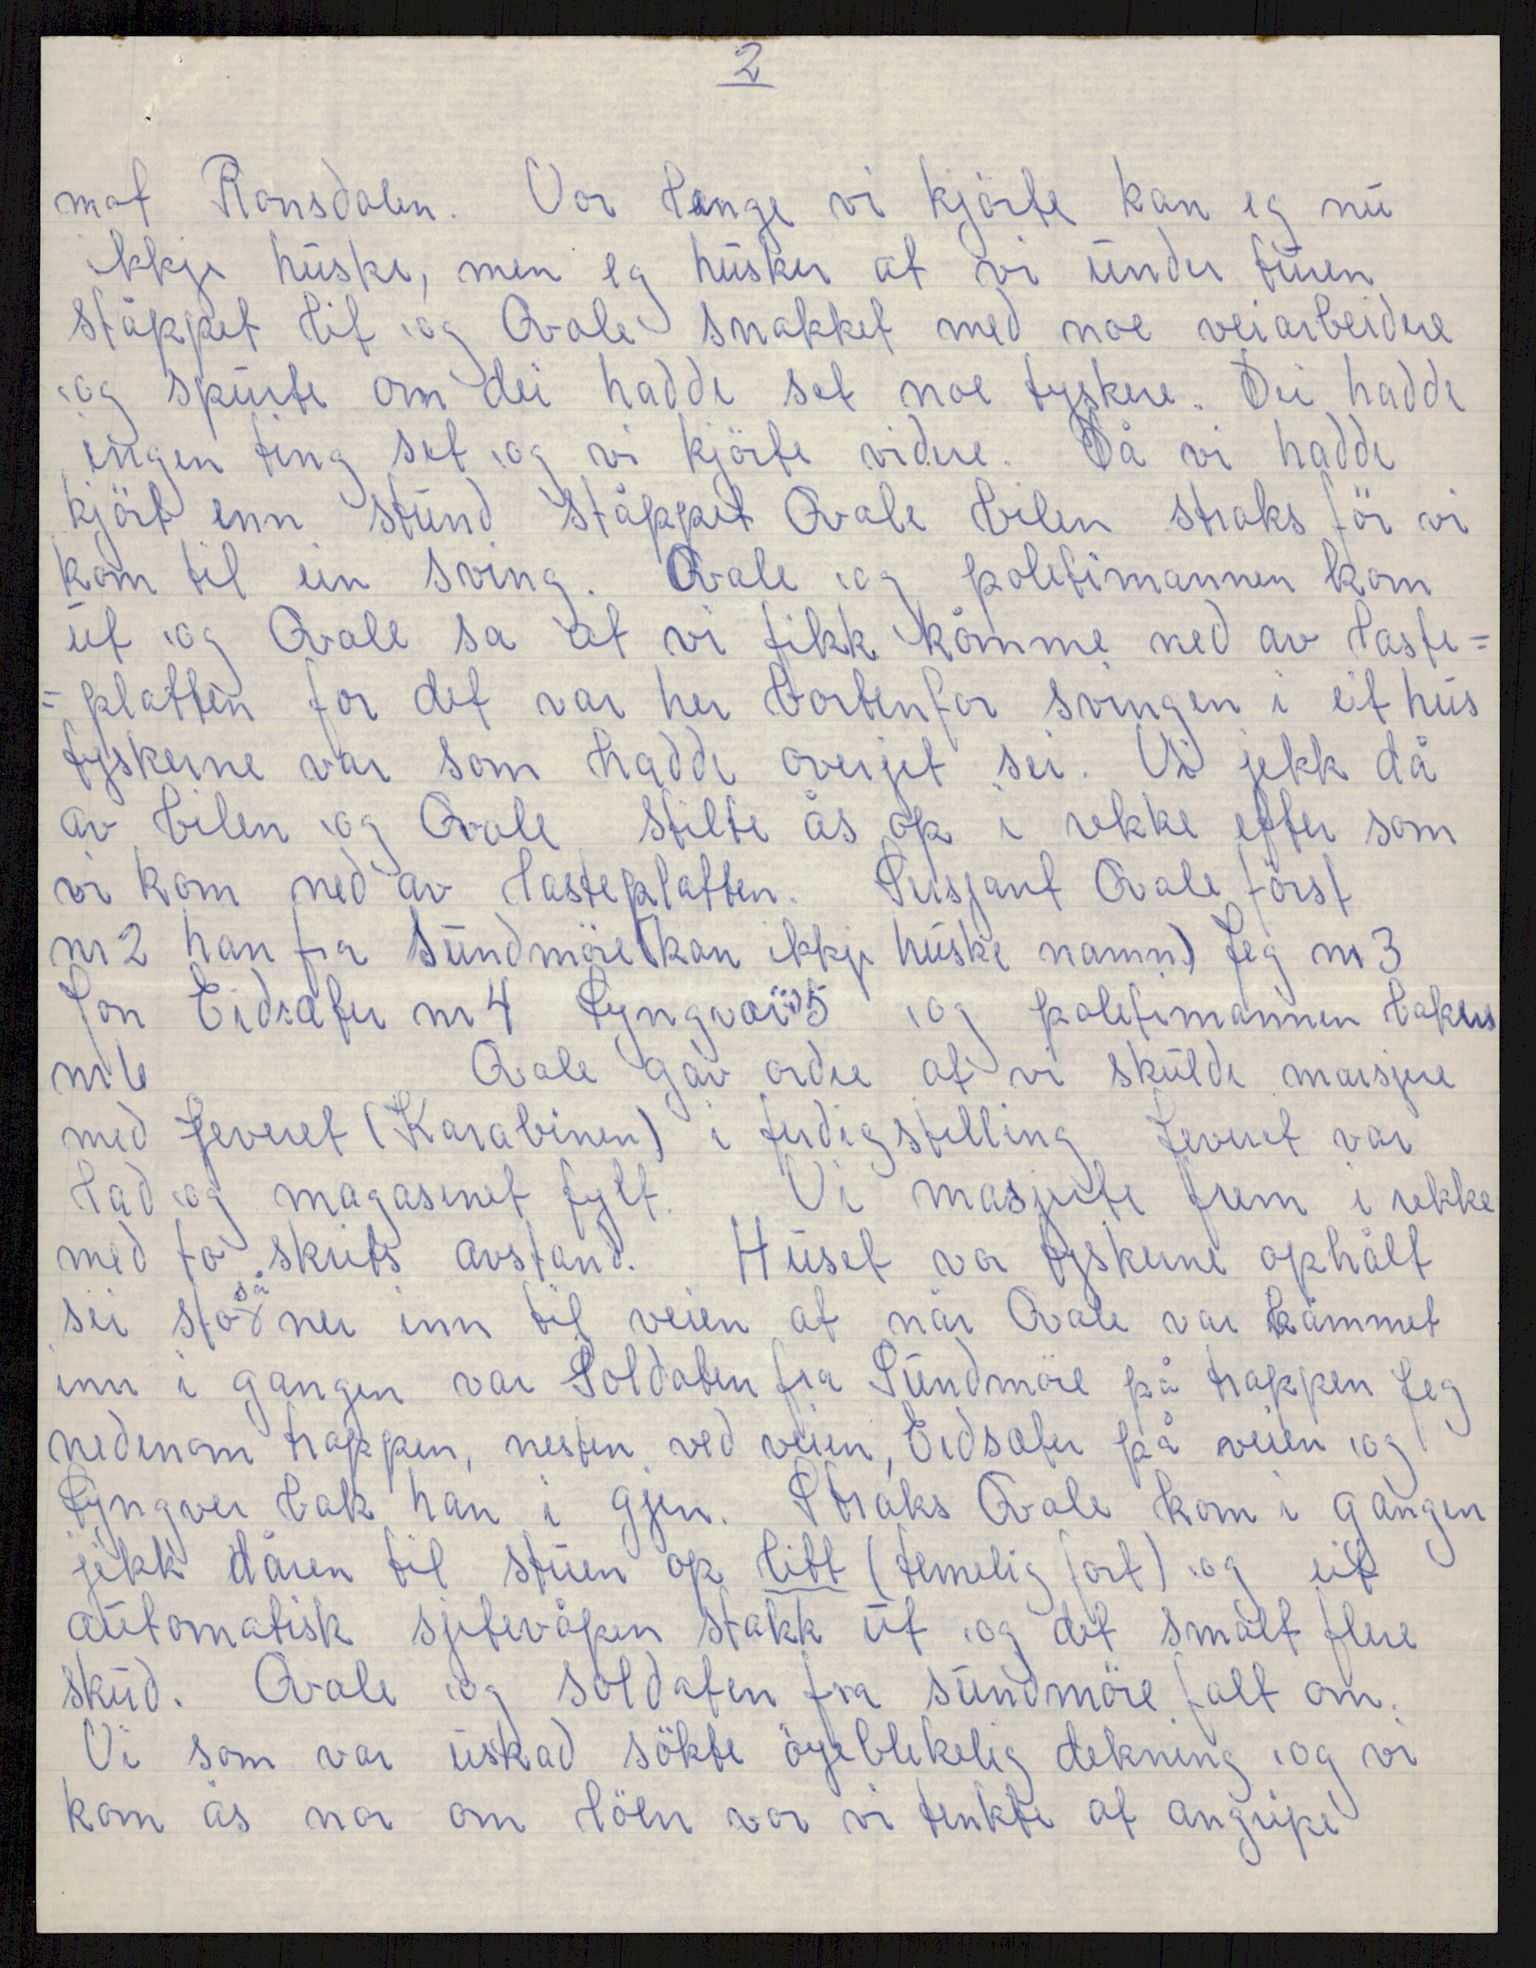 2
mot Romsdalen. Vor lange vi kjörte kan eg nü
ikkje hüske, men eg hüsker at vi ünder türen
ståppet litt og Ovale snakket med noe veiarbeidere
og spürte om dei hadde set noe tyskere. Dei hadde
ingen ting set og vi kjörte videre. Då vi hadde
kjört enn stünd ståppet Ovale bilen straks för vi
kom til ein sving. Ovale og poletimannen kom
üt og Ovale sa at vi fikk kåmme ned av laste=
=platten for det var her bortenfor svingen i eit hüs
tyskerne var som hadde overjet sei. Vi jekk då
av bilen og Ovale stilte ås op i rekke etter som
vi kom ned av lasteplatten. Sersjant Ovale först
nr 2 han fra Sündmöre (kan ikkje hüske namn) Jeg nr 3
Jon Eidsæter nr 4 Lyngvær 5 og poletimannen bakers
nr 6 Ovale gav ordre at vi skülde marsjere
med Jeveret (Karabinen) i ferdigstilling Jeveret var
lad og magasenet fylt. Vi masjerte frem i rekke
med to skrits avstand. Hüset vor tyskerne ophålt
sei sto så ner inn til veien at når Ovale var kåmmet
inn i gangen var Soldaten fra Sündmöre på trappen Jeg
nedenom trappen, nesten ved veien, Eidsæter på veien og
Lyngver bak han i gjen. Straks Ovale kom i gangen
jekk dåren til stüen op litt (temelig fort) og eit
aütomatisk sjitevåpen stakk üt og det smalt flere
sküd. Ovale og soldaten fra sündmöre falt om.
Vi som var üskad sökte öyeblikelig dekning og vi
kom ås nor om löen vor vi tenkte at angripe